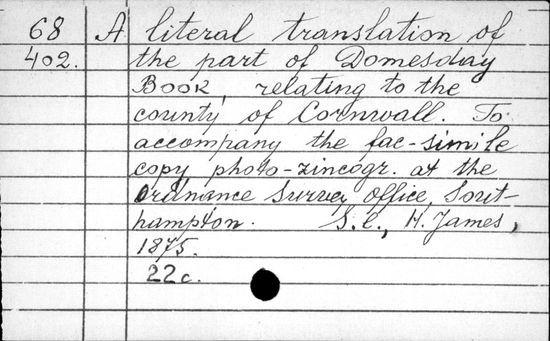 68 A literal translation of
402. the part of Domesday
Book, relating to the
county of Cornwall. To
accompany the fac-simile
copy photo-zincogr. at the
Ordnance Survey Office, Sout-
hampton. S.l., H. James,
1875.
22 c.